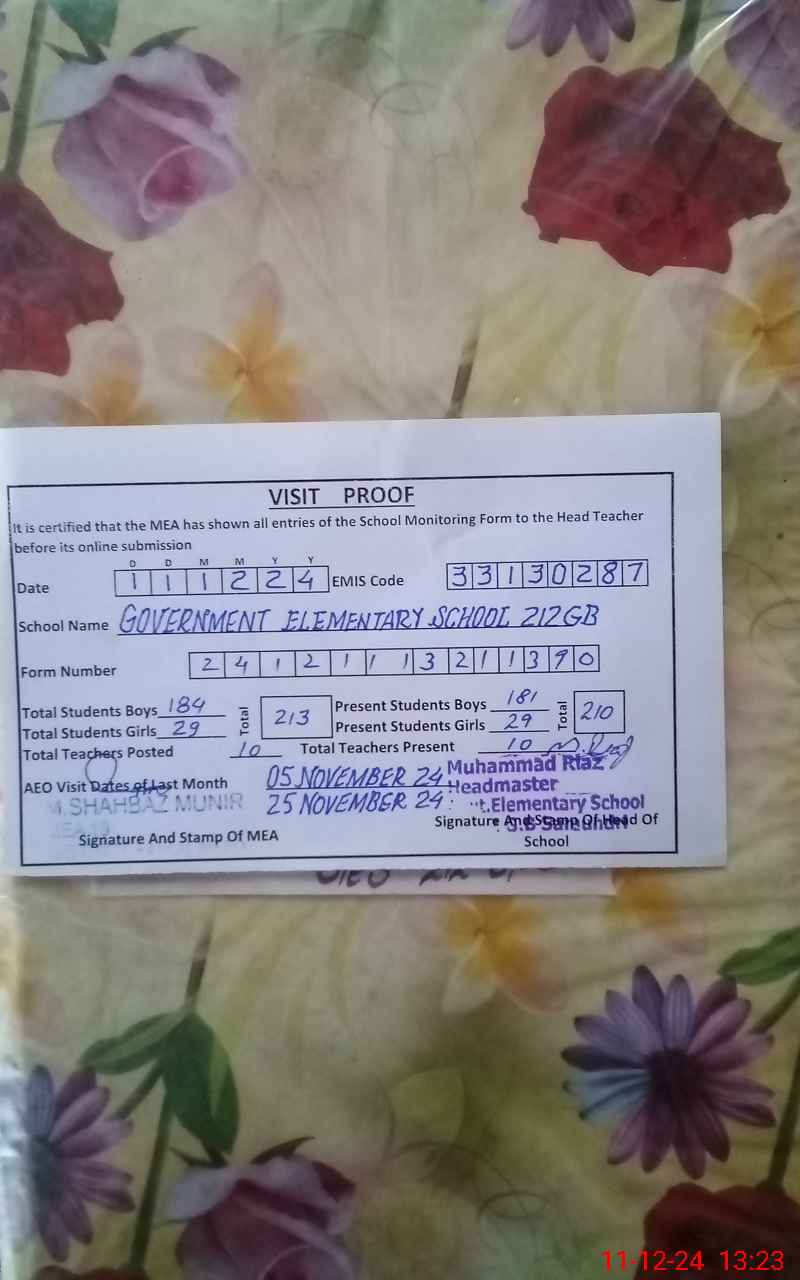 VISIT PROOF
It is certified that the MEA has shown all entries of the School Monitoring Form to the Head Teacher
before its online submission
D D M M Y Y
Date 1 1 1 2 2 4 EMIS Code 3 3 1 3 0 2 8 7
School Name GOVERNMENT ELEMENTARY SCHOOL 212 GB
Form Number 2 4 1 2 1 1 1 3 2 1 1 3 9 0
Total Students Boys 184 Total 213 Present Students Boys 181 Total 210
Total Students Girls 29 Present Students Girls 29
Total Teachers Posted 10 Total Teachers Present 10
AEO Visit Dates of Last Month 05 NOVEMBER 24 Muhammad Riaz
Headmaster
M. SHAHBAZ MUNIR 25 NOVEMBER 24 t.Elementary School
Signature And Stamp Of MEA Signature And Stamp Of Head Of
School
11-12-24 13:23